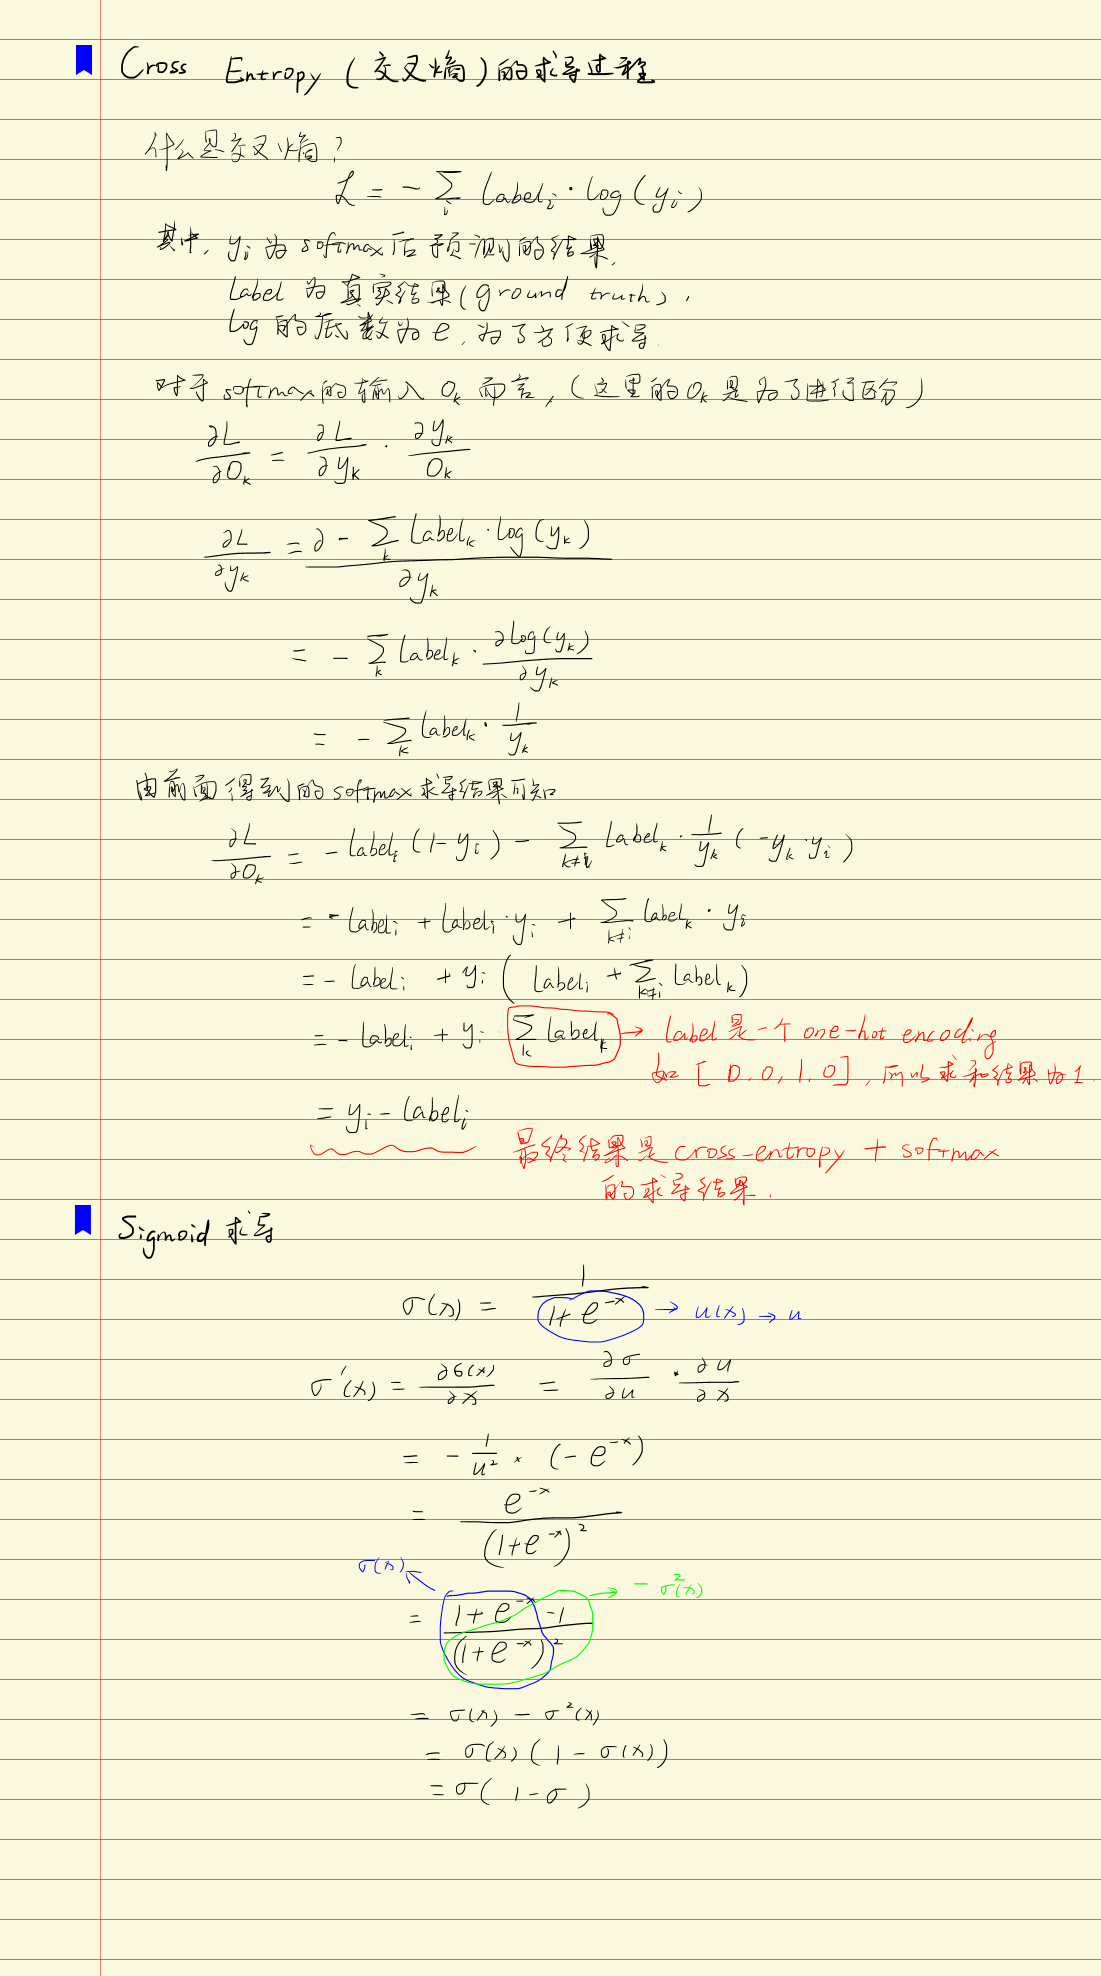 Cross Entropy (交叉熵)的求导过程
什么是交叉熵?
L = - ∑_i label_i · log(y_i)
其中, y_i 为 softmax 后预测的结果,
label 为真实结果(ground truth),
log 的底数为 e, 为了方便求导.
对于 softmax的输入 O_k 而言, (这里的O_k 是为了进行区分)
∂L/∂O_k = ∂L/∂y_k · ∂y_k/O_k
∂L/∂y_k = ∂ - ∑_k label_k · log(y_k) / ∂y_k
= - ∑_k label_k · ∂log(y_k)/∂y_k
= - ∑_k label_k · 1/y_k
由前面得到的softmax求导结果可知
∂L/∂O_k = - label_i (1-y_i) - ∑_{k≠i} label_k · 1/y_k (-y_k · y_i)
= - label_i + label_i · y_i + ∑_{k≠i} label_k · y_i
= - label_i + y_i ( label_i + ∑_{k≠i} label_k)
= - label_i + y_i ∑_k label_k → label 是一个 one-hot encoding
如 [0.0,1.0], 所以求和结果为1.
= y_i - label_i
最终结果是cross-entropy + softmax
的求导结果.
Sigmoid 求导
σ(x) = 1/(1+e^{-x}) → u(x) → u
σ'(x) = ∂σ(x)/∂x = ∂σ/∂u · ∂u/∂x
= - 1/u² · (-e^{-x})
= e^{-x}/(1+e^{-x})²
σ(x)
- σ²(x)
= (1+e^{-x} -1)/(1+e^{-x})²
= σ(x) - σ²(x)
= σ(x) (1 - σ(x))
= σ( 1-σ )